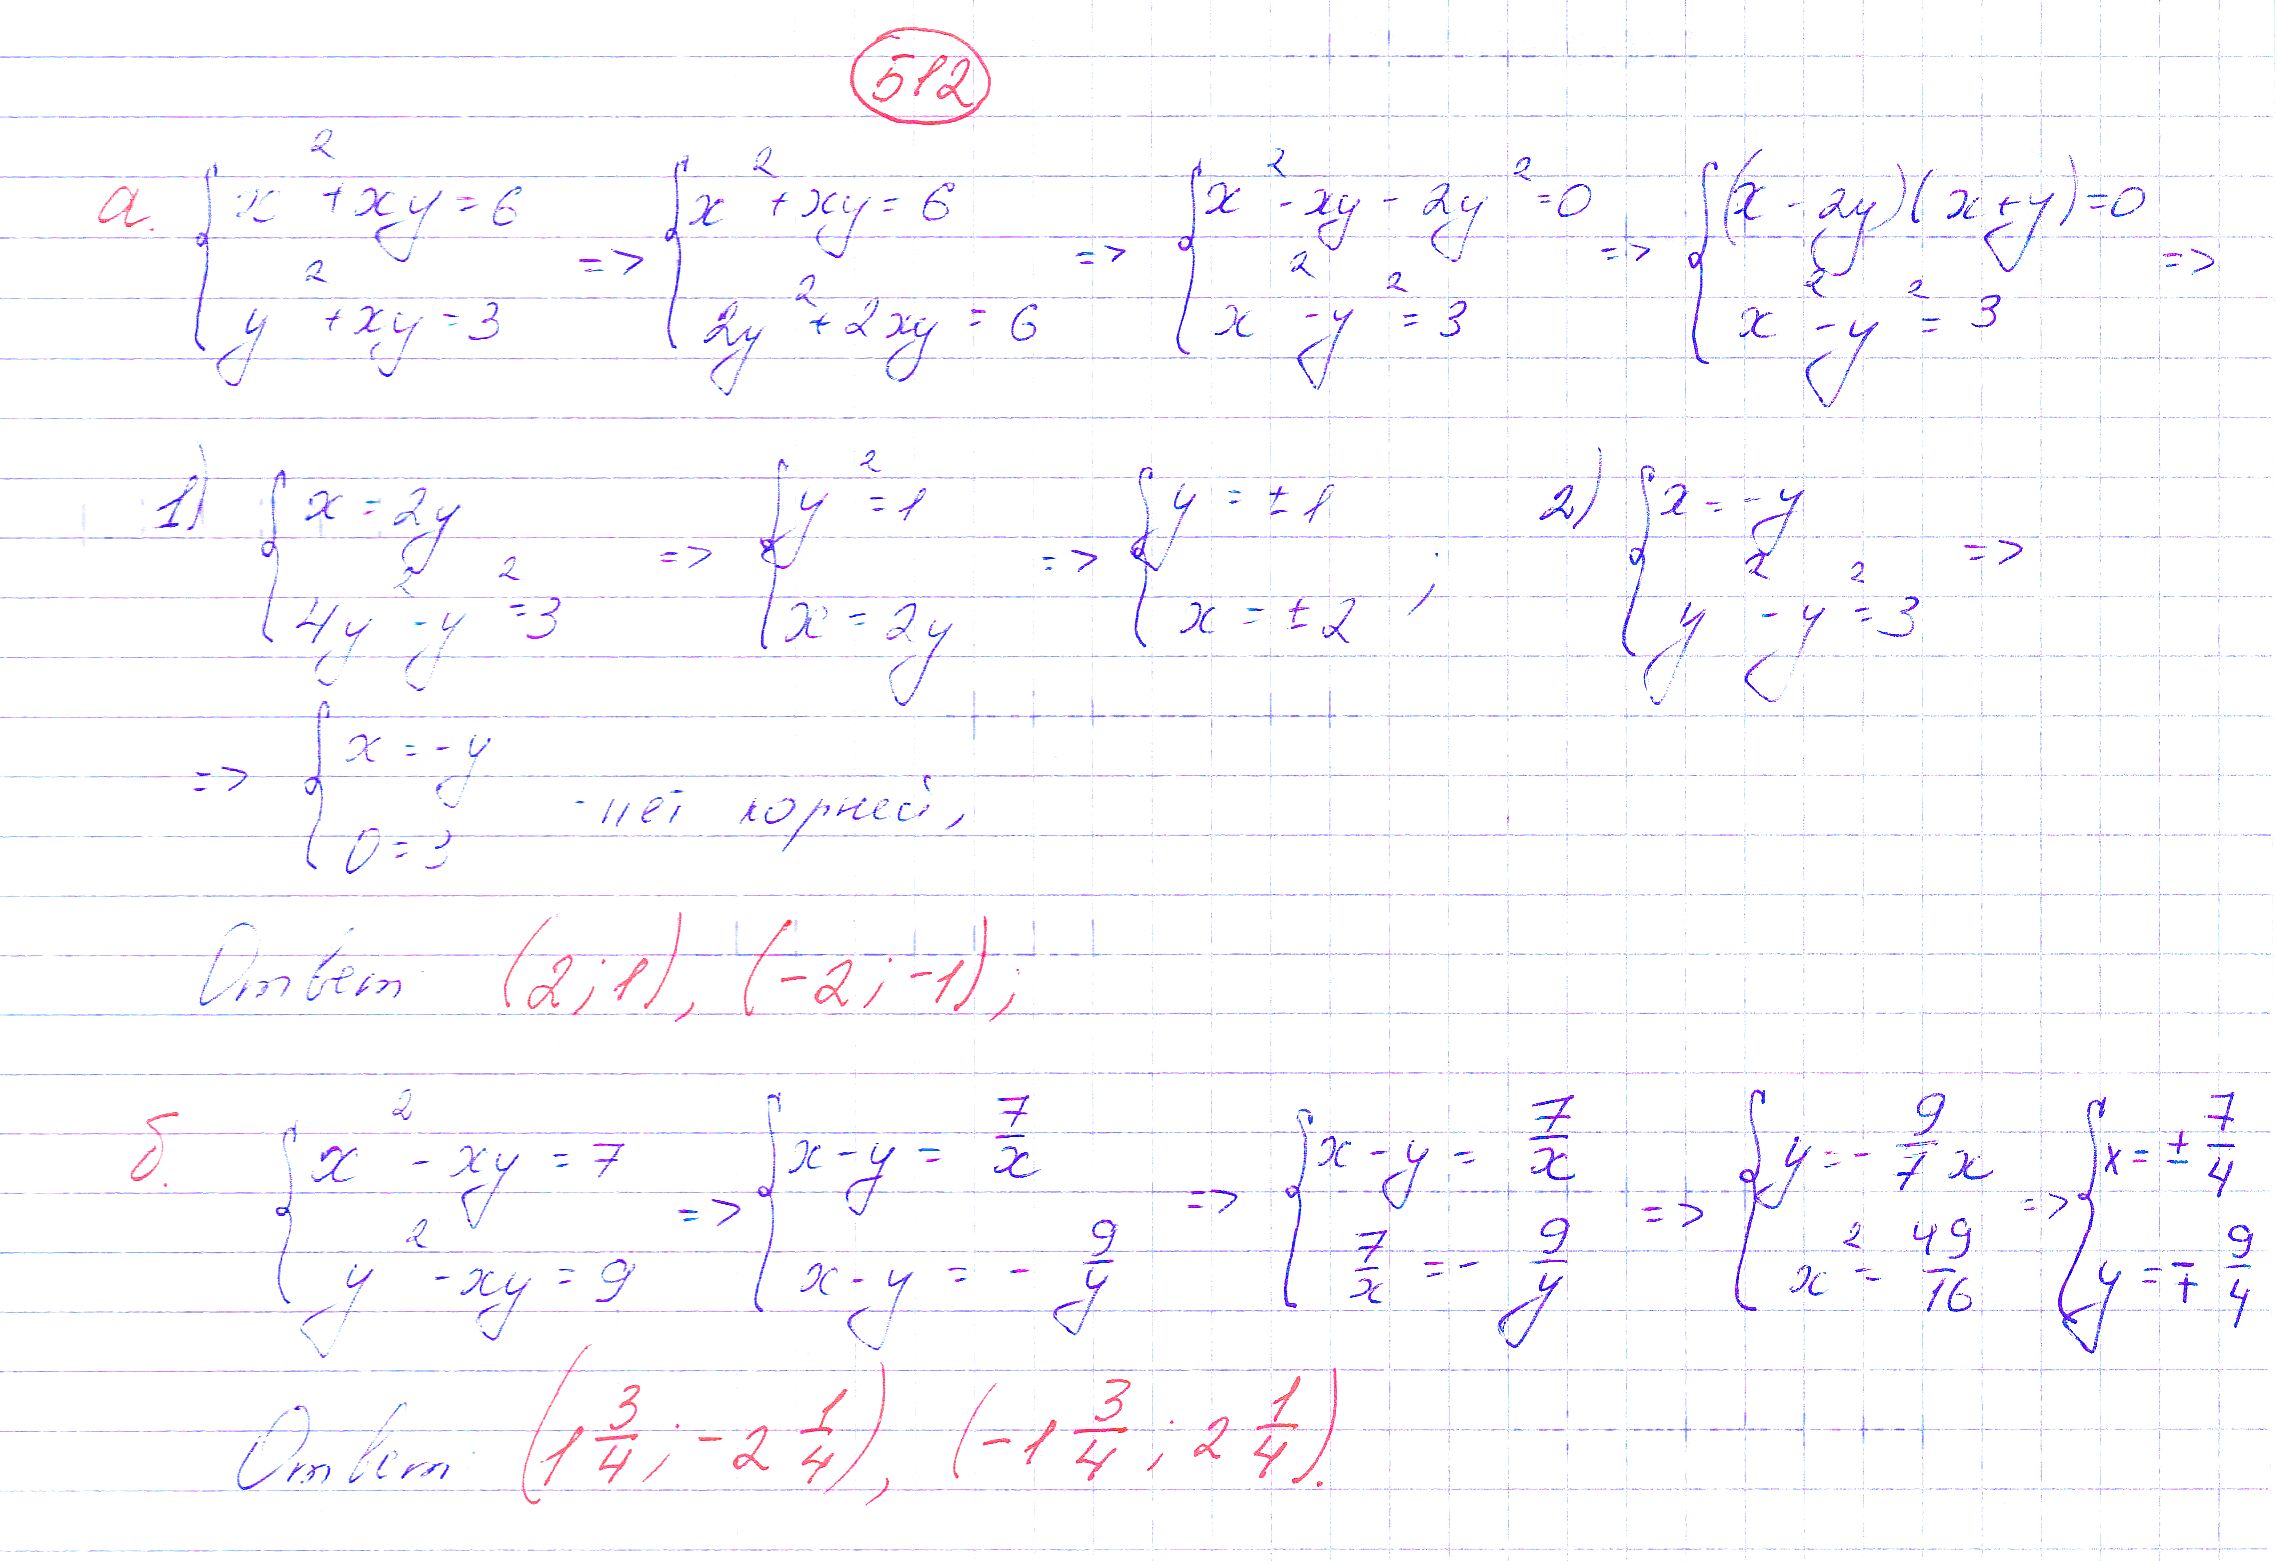 512
а. { x² + xy = 6 ; y² + xy = 3 => { x² + xy = 6 ; 2y² + 2xy = 6 => { x² - xy - 2y² = 0 ; x² - y² = 3 => { (x - 2y)(x + y) = 0 ; x² - y² = 3 =>
1) { x = 2y ; 4y² - y² = 3 => { y² = 1 ; x = 2y => { y = ±1 ; x = ±2 ; 2) { x = -y ; y² - y² = 3 =>
=> { x = -y ; 0 = 3 - нет корней,
Ответ (2; 1), (-2; -1);
б. { x² - xy = 7 ; y² - xy = 9 => { x - y = 7/x ; x - y = - 9/y => { x - y = 7/x ; 7/x = - 9/y => { y = - 9/7 x ; x² = 49/16 => { x = ± 7/4 ; y = ∓ 9/4
Ответ: (1 3/4; -2 1/4), (-1 3/4; 2 1/4).